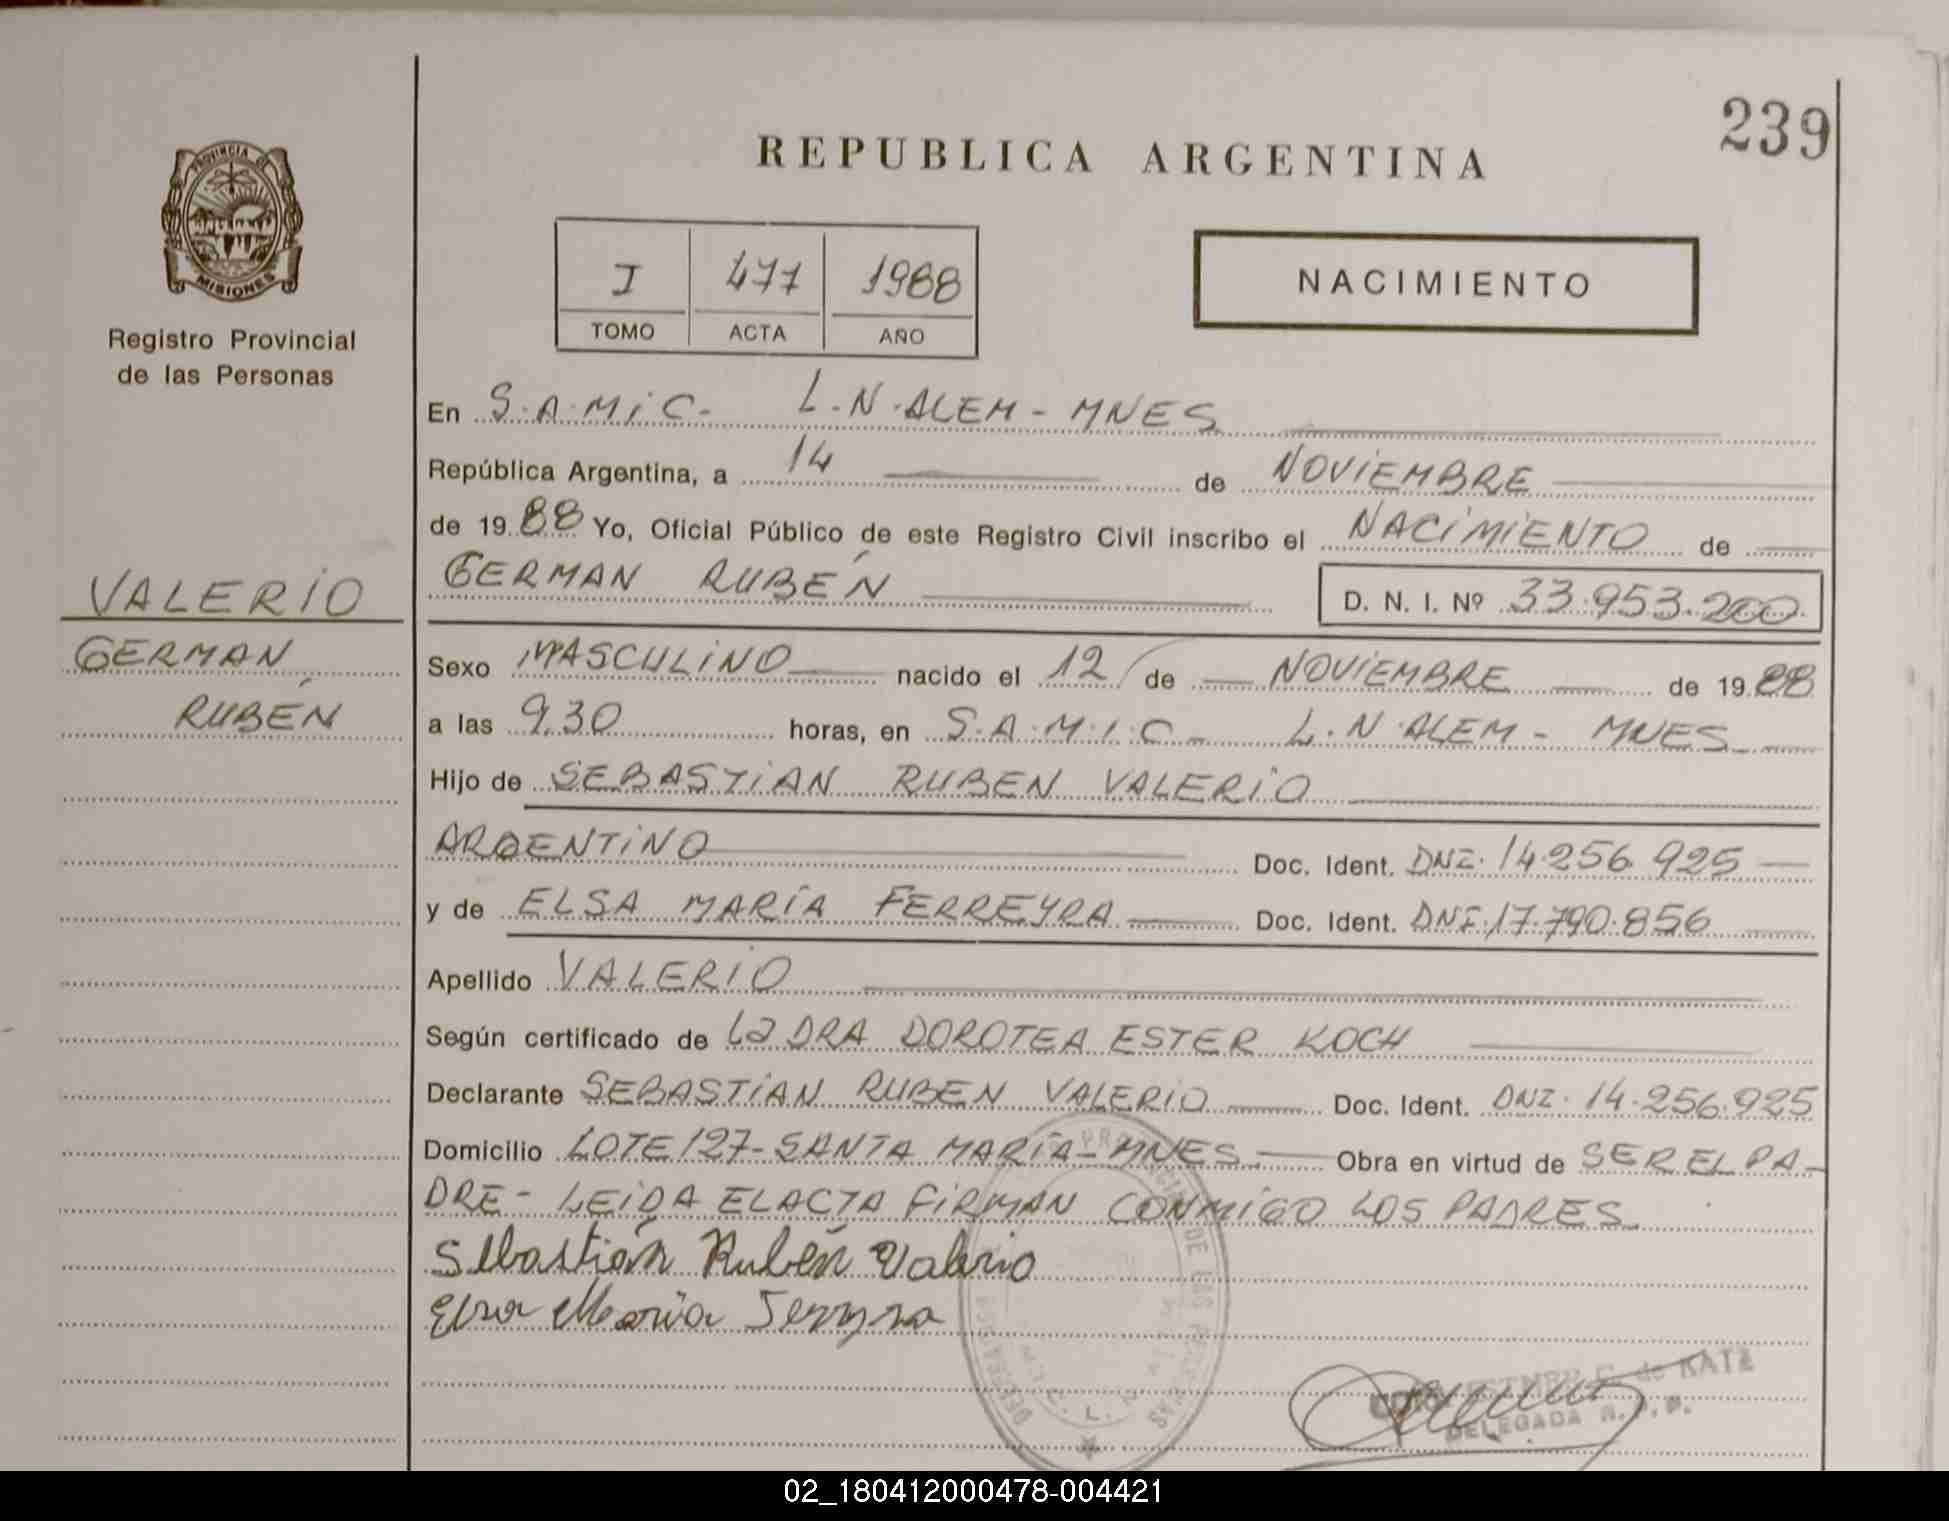 239
REPUBLICA ARGENTINA
PROVINCIA DE
MISIONES
Registro Provincial
de las Personas
I 477 1988
TOMO ACTA AÑO
NACIMIENTO
En S.A.MiC. L.N.ALEM - MNES
República Argentina, a 14 de NOViEMBRE
de 19 88 Yo, Oficial Público de este Registro Civil inscribo el NACiMiENTO de
GERMAN RUBÉN D. N. I. Nº 33.953.200
VALERiO
GERMAN
RUBÉN
Sexo MASCULiNO nacido el 12 de NOViEMBRE de 19 88
a las 9,30 horas, en S.A.M.I.C - L.N.ALEM - MNES
Hijo de SEBASTiAN RUBEN VALERiO
ARGENTiNO Doc. Ident. DNI. 14.256.925
y de ELSA MARÍA FERREYRA Doc. Ident. DNI.17.790.856
Apellido VALERiO
Según certificado de La DRA DOROTEA ESTER KOCH
Declarante SEBASTiAN RUBEN VALERiO Doc. Ident. DNI. 14.256.925
Domicilio LOTE 127- SANTA MARÍA - MNES Obra en virtud de SER EL PA-
DRE - LEiDA EL ACTA FiRMAN CONMiGO LOS PADRES
Sebastián Rubén Valerio
Elsa Maria Ferreyra
de KATZ
DELEGADA R. P. P.
02_180412000478-004421